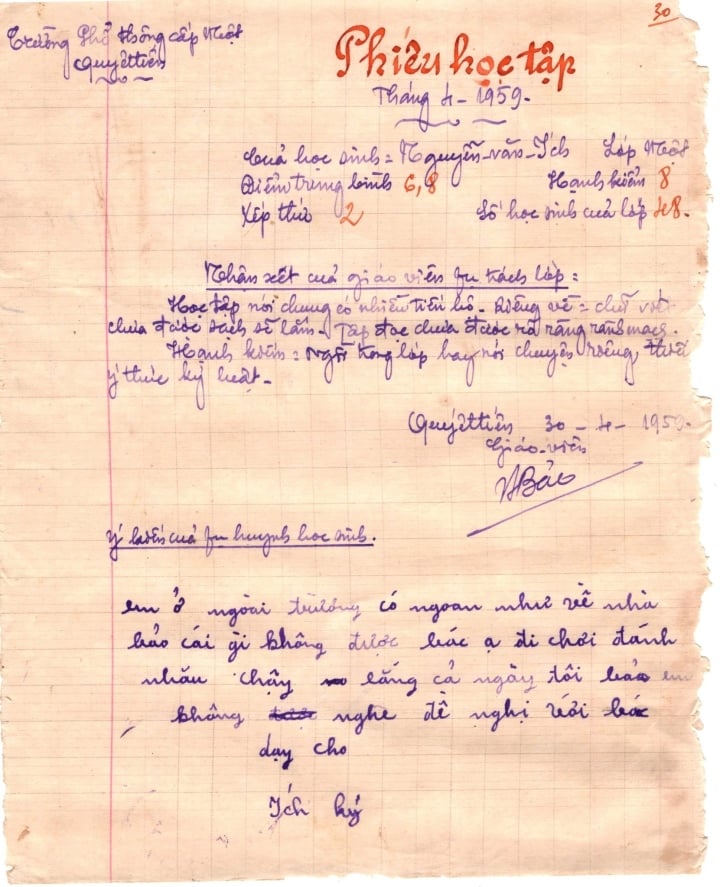 30
Trường Phổ thông cấp Một
Quyết tiến
Phiếu học tập
Tháng 4 - 1959.
Của học sinh = Nguyễn-văn-Ích Lớp Một
Điểm trung bình 6,8 Hạnh kiểm 8
Xếp thứ 2 Số học sinh của lớp 48.
Nhận xét của giáo viên fụ trách lớp:
Học tập nói chung có nhiều tiến bộ. Riêng về = chữ viết
chưa được sạch sẽ lắm. Tập đọc chưa được rõ ràng rành mạch.
Hạnh kiểm: Ngồi trong lớp hay nói chuyện riêng, thiếu
ý thức kỷ luật.
Quyết tiến 30 - 4 - 1959.
Giáo-viên
Bảo
Ý kiến của fụ huynh học sinh.
em ở ngoài trường có ngoan như về nhà
bảo cái gì không được bác ạ đi chơi đánh
nhău chậy lăng cả ngày tôi bảo em
không nghe đề nghị với bác
dạy cho
Ích ký